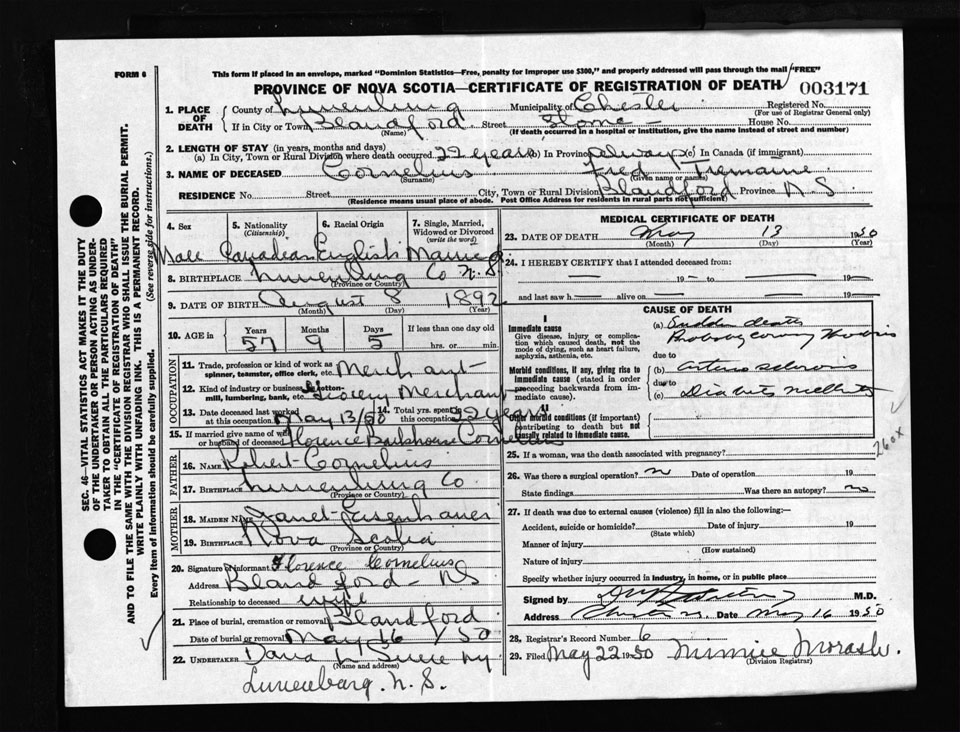 FORM 6
This form if placed in an envelope, marked "Dominion Statistics—Free, penalty for improper use $300," and properly addressed will pass through the mail "FREE"
PROVINCE OF NOVA SCOTIA—CERTIFICATE OF REGISTRATION OF DEATH
003171
1. PLACE OF DEATH
County of Lunenburg Municipality of Chester Registered No.
(For use of Registrar General only)
If in City or Town Blandford Street Home House No.
(Name) (If death occurred in a hospital or institution, give the name instead of street and number)
2. LENGTH OF STAY (in years, months and days)
(a) In City, Town or Rural Division where death occurred 22 years (b) In Province always (c) In Canada (if immigrant)
3. NAME OF DECEASED Cornelius Fred Tremaine
(Surname) (Given name or names)
RESIDENCE No. Street City, Town or Rural Division Blandford Province N.S
(Residence means usual place of abode. Post Office Address for residents in rural parts not sufficient)
SEC. 46—VITAL STATISTICS ACT MAKES IT THE DUTY
OF THE UNDERTAKER OR PERSON ACTING AS UNDER-
TAKER TO OBTAIN ALL THE PARTICULARS REQUIRED
IN THE "CERTIFICATE OF REGISTRATION OF DEATH"
AND TO FILE THE SAME WITH THE DIVISION REGISTRAR WHO SHALL ISSUE THE BURIAL PERMIT.
WRITE PLAINLY WITH UNFADING INK. THIS IS A PERMANENT RECORD.
Every item of information should be carefully supplied. (See reverse side for instructions.)
4. Sex
5. Nationality
(Citizenship)
6. Racial Origin
7. Single, Married,
Widowed or Divorced
(write the word)
Male Canadian English Married
8. BIRTHPLACE Lunenburg Co N.S
(Province or Country)
9. DATE OF BIRTH August 8 1892
(Month) (Day) (Year)
10. AGE in
Years Months Days If less than one day old
57 9 5 hrs. or min.
OCCUPATION
11. Trade, profession or kind of work as
spinner, teamster, office clerk, etc. Merchant
12. Kind of industry or business, as cotton-
mill, lumbering, bank, etc. Grocery Merchant
13. Date deceased last worked
at this occupation May 13/50
14. Total yrs. spent in
this occupation 22 years
15. If married give name of wife
or husband of deceased Florence Cornelius
FATHER
16. NAME Robert Cornelius
17. BIRTHPLACE Lunenburg Co
(Province or Country)
MOTHER
18. MAIDEN NAME Janet Eisenhauer
19. BIRTHPLACE Nova Scotia
(Province or Country)
20. Signature of informant Florence Cornelius
Address Blandford - NS
Relationship to deceased wife
21. Place of burial, cremation or removal Blandford
Date of burial or removal May 16/50
22. UNDERTAKER
(Name and address)
Lunenburg. N. S.
MEDICAL CERTIFICATE OF DEATH
23. DATE OF DEATH May 13 1950
(Month) (Day) (Year)
24. I HEREBY CERTIFY that I attended deceased from:
19 to 19
and last saw h alive on 19
CAUSE OF DEATH
I
Immediate cause
Give disease, injury or complica-
tion which caused death, not the
mode of dying, such as heart failure,
asphyxia, asthenia, etc.
(a) Sudden death
Probably coronary thrombosis
due to
Morbid conditions, if any, giving rise to
immediate cause (stated in order
proceeding backwards from im-
mediate cause).
(b) Arterio sclerosis
due to
(c) Diabetes mellitus
II
Other morbid conditions (if important)
contributing to death but not
causally related to immediate cause.
260x
25. If a woman, was the death associated with pregnancy?
26. Was there a surgical operation? no Date of operation 19
State findings Was there an autopsy? no
27. If death was due to external causes (violence) fill in also the following:—
Accident, suicide or homicide? Date of injury 19
(State which)
Manner of injury
(How sustained)
Nature of injury
Specify whether injury occurred in industry, in home, or in public place
Signed by M.D.
Address Date May 16 1950
28. Registrar's Record Number 6
29. Filed May 22 1950 Minnie Morash.
(Division Registrar)